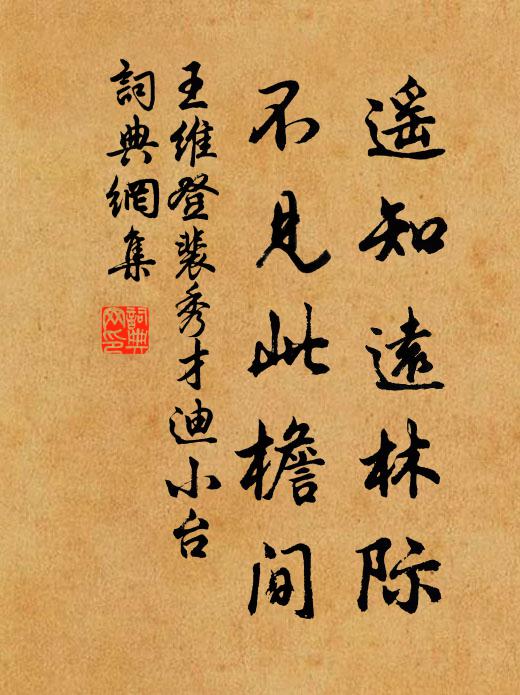 遥知遠林际
不見此檐间
王維登裴秀才迪小台
詞典網集
詞典網印